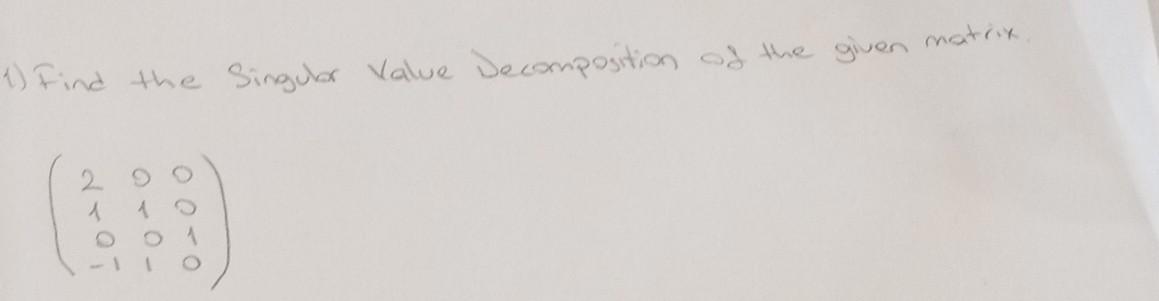 1) Find the Singular Value Decomposition of the given matrix.
2 0 0
1 1 0
0 0 1
-1 1 0